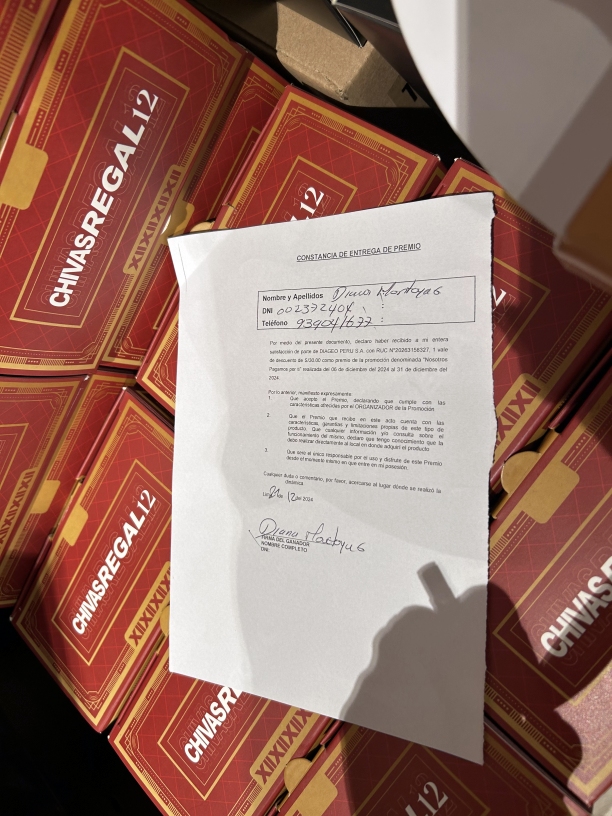 CONSTANCIA DE ENTREGA DE PREMIO
Nombre y Apellidos Diana Montoya G
DNI 002372404 :
Teléfono 939041677 :
Por medio del presente documento, declaro haber recibido a mi entera
satisfacción de parte de DIAGEO PERU S.A. con RUC N°20263158327, 1 vale
de descuento de S/30.00 como premio de la promoción denominada "Nosotros
Pagamos por ti" realizada del 06 de diciembre del 2024 al 31 de diciembre
del 2024.
Por lo anterior, manifiesto expresamente:
1. Que acepto el Premio, declarando que cumple con las
características ofrecidas por el ORGANIZADOR de la Promoción
2. Que el Premio que recibo en este acto cuenta con las
características, garantías y limitaciones propias de este tipo de
producto. Que cualquier información y/o consulta sobre el
funcionamiento del mismo, declaro que tengo conocimiento que la
debo realizar directamente al local en donde adquirí el producto.
3. Que seré el único responsable por el uso y disfrute de este Premio
desde el momento mismo en que entre en mi posesión.
Cualquier duda o comentario, por favor, acercarse al lugar donde se realizó la
dinámica
21 de 12 del 2024
Diana Montoya G
FIRMA DEL GANADOR
NOMBRE COMPLETO
DNI:
CHIVAS REGAL 12
XII XII XII XII
12
CHIVAS REGAL 12
XII XII XII
CHIVAS R
XII XII XII
CHIVAS
12